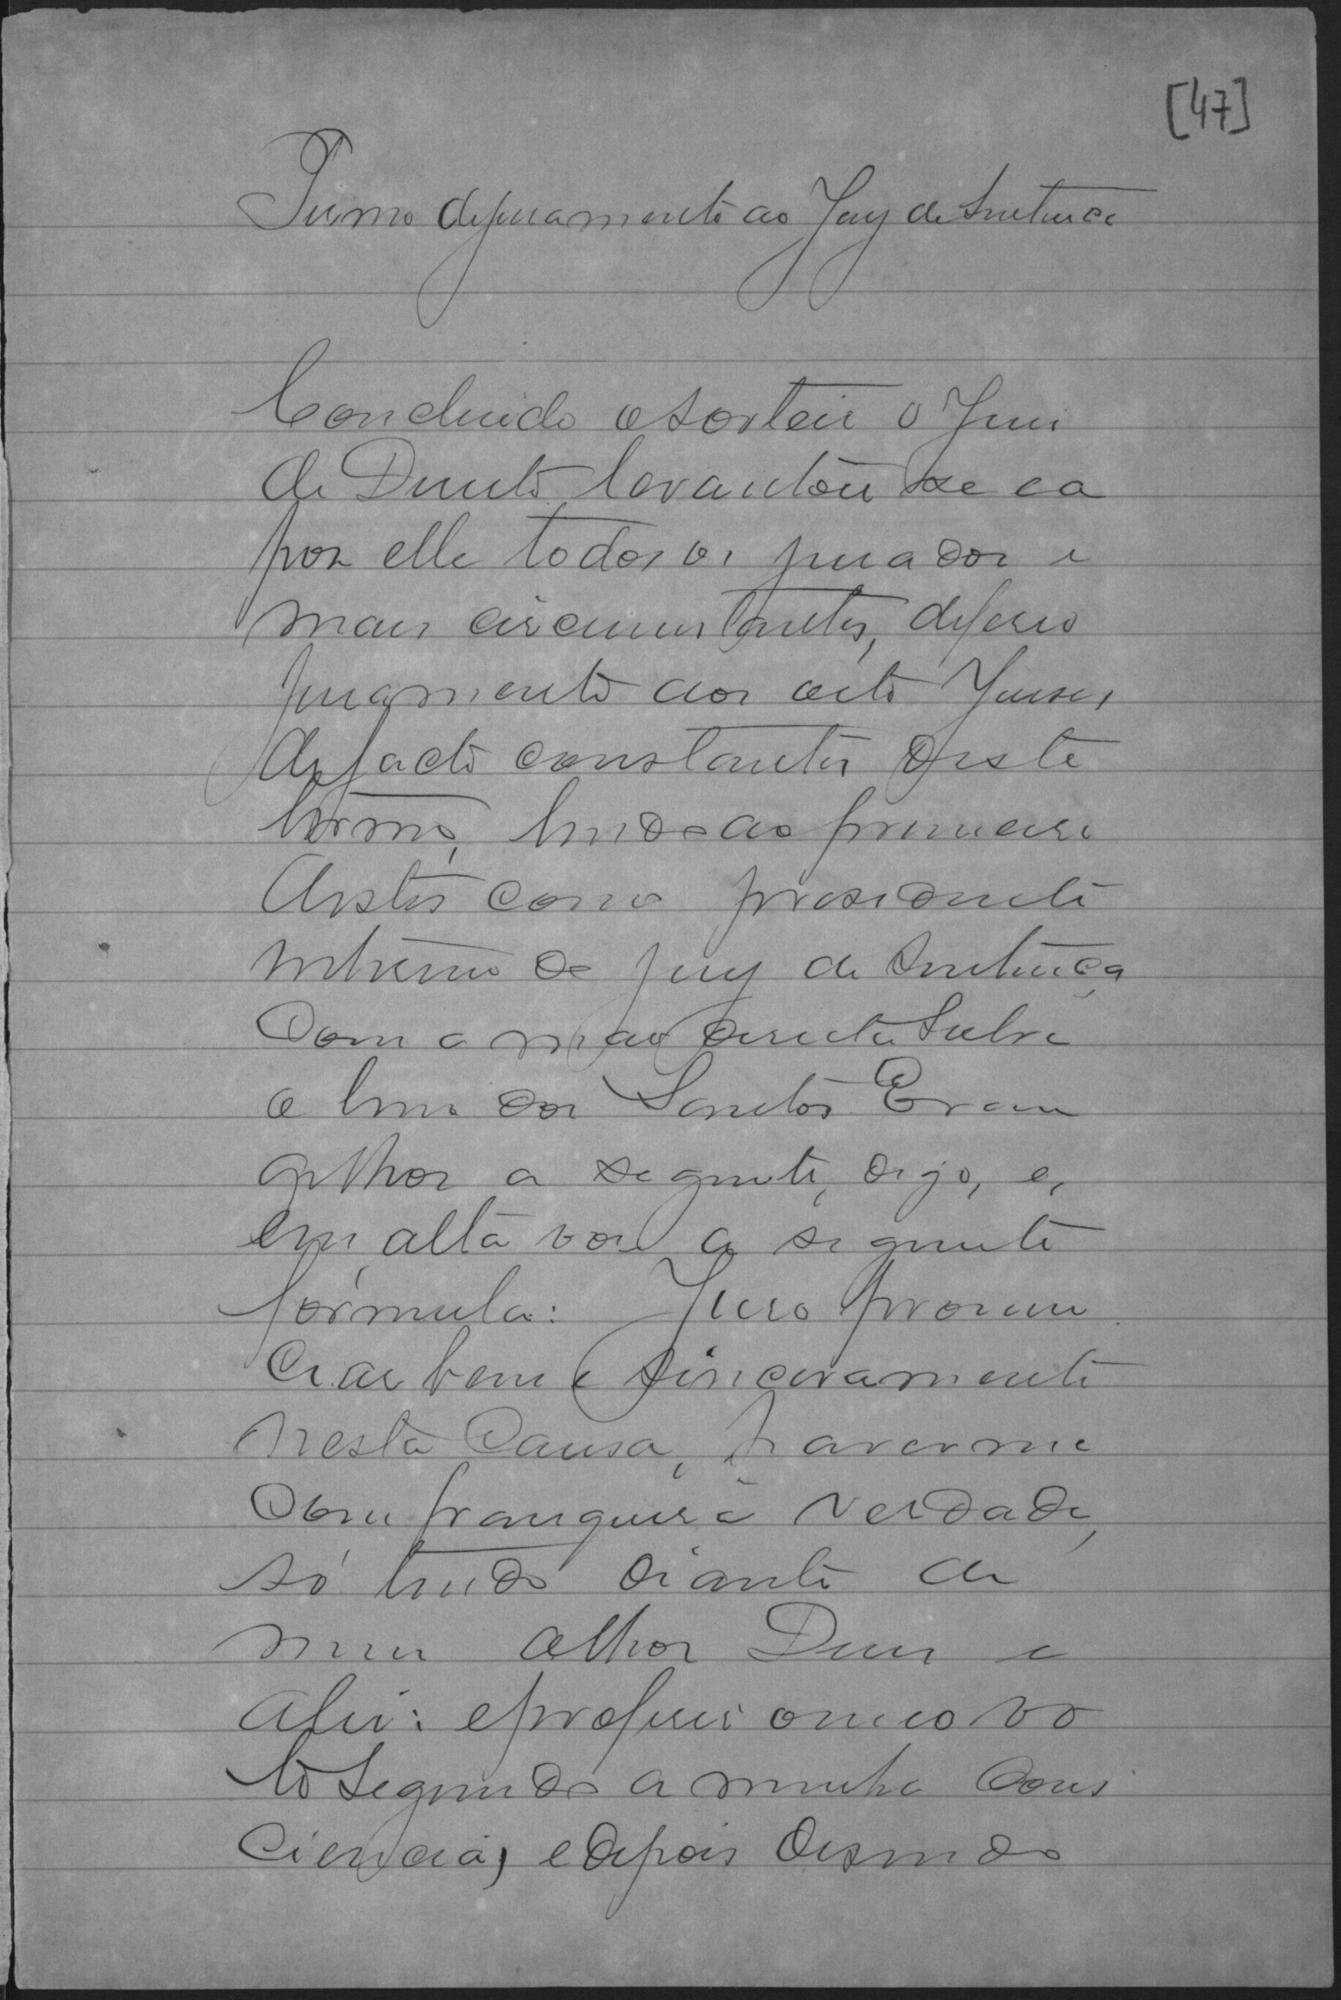 [47]
Termo de juramento ao Jury de Sentença
Concluido o sorteio o Juiz
de Direito levantou se e a
pos elle todos os jurados e
mais circumstantes, deferio
juramento aos oito Juises
de facto constantes deste
termo, lendo ao primeiro
destes como presidente
interino do jury de Sentença
com a mão direita sobre
o livro dos Santos Evan
gelhos a seguinte, digo, e,
em alta voz a seguinte
fórmula: Juro pronun
ciar bem e sinceramente
nesta causa, haver me
com franquesa e verdade,
só tendo diante de
meus olhos Deus e
a lei: e proferir o meo vo
to segundo a minha Cons
ciencia, e depois disendo